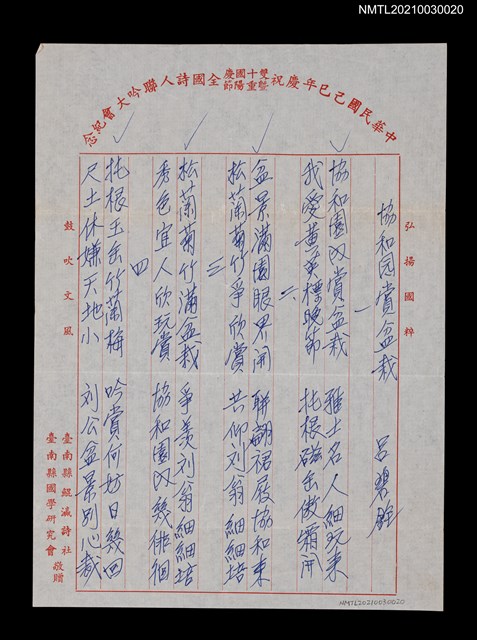 NMTL20210030020
中華民國己巳年慶祝雙十國慶暨重陽節全國詩人聯吟大會紀念
弘揚國粹
協和园賞盆栽 呂碧銓
一
協和園內賞盆栽 雅士名人細玩来
我愛黃英標晚節 托根磁缶傲霜開
二
盆景滿園眼界開 聯翩裙屐協和来
松蘭菊竹爭欣賞 共仰刘翁細細培
三
松蘭菊竹滿盆栽 爭羨刘翁細細培
秀色宜人欣玩賞 協和園內幾徘徊
四
托根玉缶竹蘭梅 吟賞何妨日幾回
尺土休嫌天地小 刘公盆景別心裁
鼓吹文風
臺南縣鯤瀛詩社
臺南縣國學研究會 敬贈
NMTL20210030020